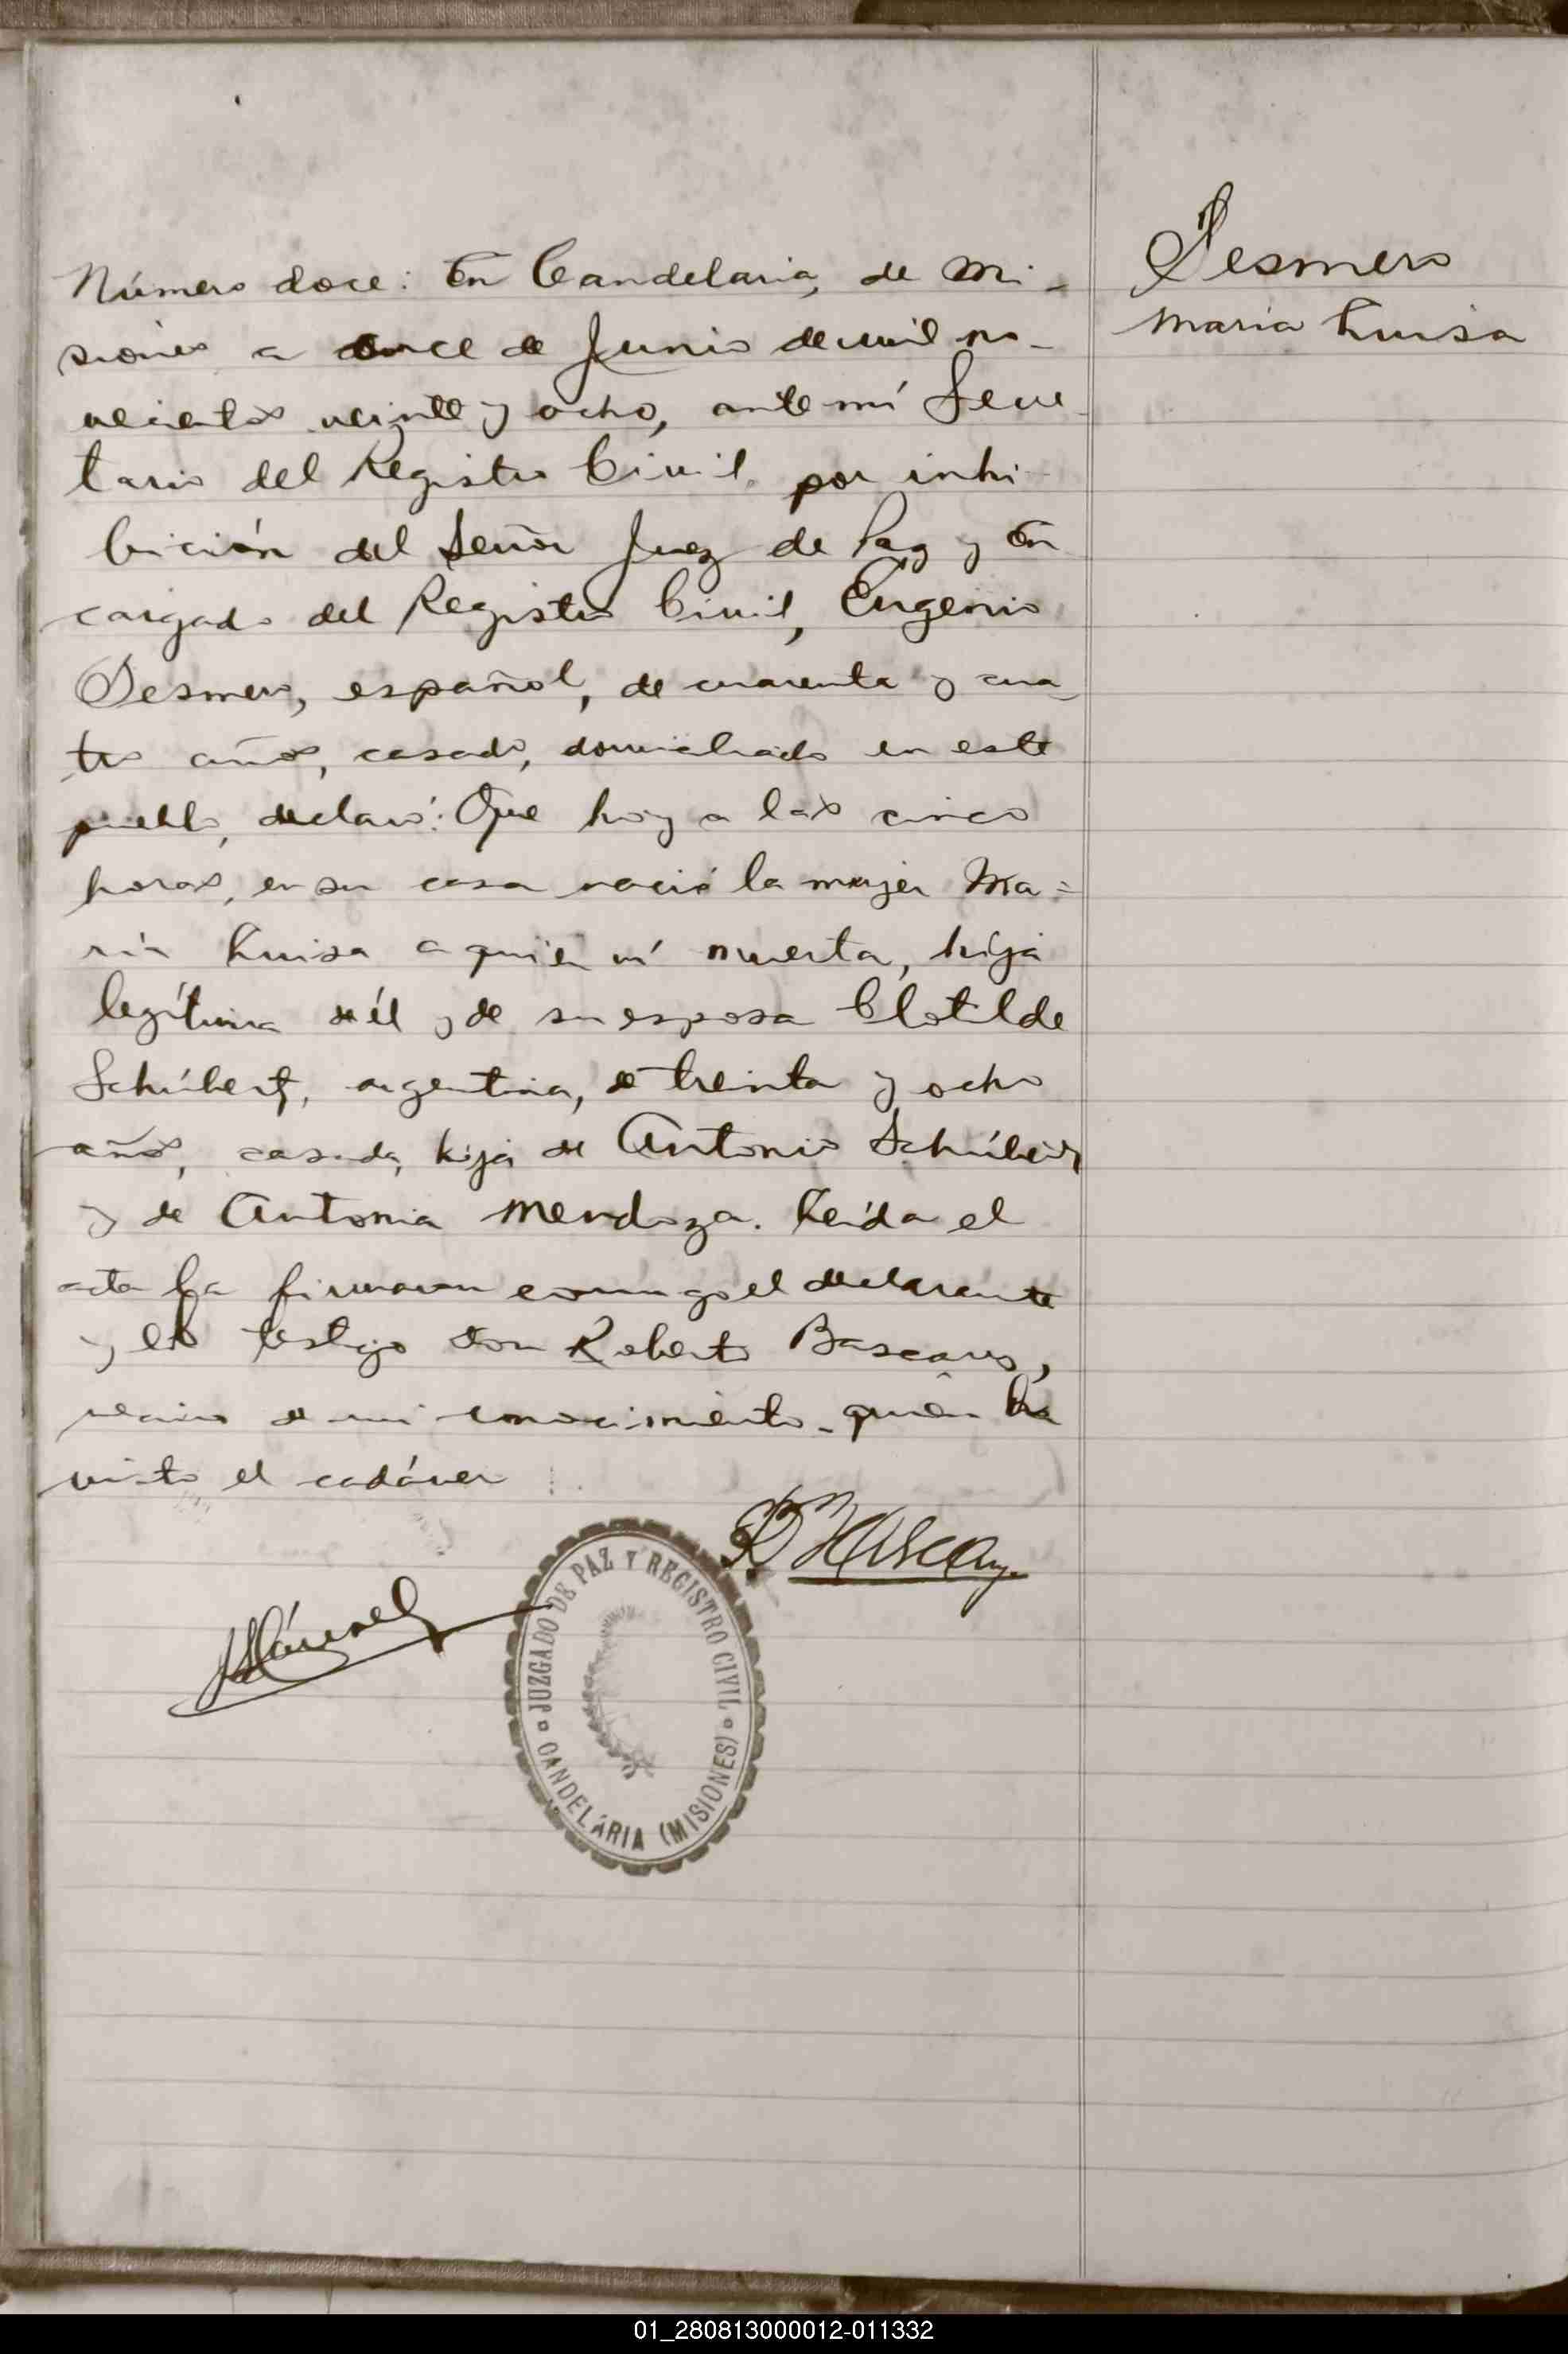 Sesmero
Maria Luisa
Número doce: En Candelaria, de Mi-
siones a once de Junio de mil no-
vecientos veinte y ocho, ante mí Secre
tario del Registro Civil por inhi-
bición del Señor Juez de Paz y En
cargado del Registro Civil, Eugenio
Sesmero, español, de cuarenta y cua
tro años, casado, domiciliado en este
pueblo, declaró: Que hoy a las cinco
horas, en su casa nació la mujer Ma=
ría Luisa a quien ví muerta, hija
legítima de él y de su esposa Clotilde
Schúbert, argentina, de treinta y ocho
años, casada, hija de Antonio Schúbert
y de Antonia Mendoza. Leída el
acta la firmaron conmigo el declarante
y el testigo don Roberto Bascary,
vecino de mi conocimiento - quien ha
visto el cadáver
R Bascary
JUZGADO DE PAZ Y REGISTRO CIVIL
CANDELÁRIA (MISIONES)
01_280813000012-011332